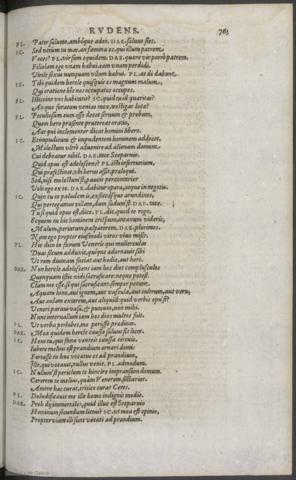 RVDENS. 763
PL. Pater saluto, amboque adeo. DAE. saluus sies.
SC. Sed vtrum tu mas, an fœmina es, qui illum patrem
Vocas? PL. vir sum equidem. DAE. quære vir porro patrem.
Filiolam ego vnam habui, eam vnam perdidi.
Virile sexus nunquam vllum habui. PL. at di dabunt.
SC. Tibi quidem hercle quisquis es magnum malum,
Qui oratione hic nos occupatos occupes.
PL. Isticcine vos habitatis? SC. quid tu id quæritas?
An quo furatum venias mox, vestigas loca?
PL. Peculiosum eum esse decet seruum & probum,
Quem hero præsente prætereat oratio,
Aut qui inclementer dicat homini libero.
SC. Et impudicum & impudentem hominem addecet,
Molestum vltro aduenire ad alienam domum,
Cui debeatur nihil. DAE. tace Sceparnio.
Quid opus est adolescens? PL. isti infortunium,
Qui præfestinet, vbi herus assit, præloqui.
Sed, nisi molestum st, paucis percontarier
Volo ego ex te. DAE. dabitur opera, atque in negotio.
SC. Quin tu in paludem is, exsiccasque arundines,
Qui pertegamus villam, dum sudum st? DAE. tace.
Tu si quid opus est dice. PL. dic, quod te rogo,
Ecquem tu hic hominem crispum, incanum videris,
Malum, periurum, palpatorem. DAE. plurimos.
Nam ego propter eiusmodi viros viuo miser.
PL. Hic dico in fanum Veneris qui mulierculas
Duas secum adduxit, quique adornauit sibi
Vt rem diuinam faciat aut hodie, aut heri.
DAE. Non hercle adolescens iam hos dies complusculos
Quenquam istic vidi sacruficare: neque potest
Clam me esse, si qui sacruficant: semper petunt,
Aquam hinc, aut ignem, aut vascula, aut cultrum, aut veru,
Aut aulam extarem, aut aliquid: quid verbis opu'st?
Veneri paraui vasa, & puteum, non mihi.
Nunc interuallum iam hos dies multos fuit.
PL. Vt verba prohibes, me periisse prædicas.
DAE. Mea quidem hercle caussa saluus sis licet.
SC. Heus tu, qui fana ventris caussa circuis,
Iubere melius est prandium ornari domi:
Fortasse tu huc vocatus es ad prandium,
Ille, qui vocauit, nullus venit. PL. admodum.
SC. Nullum st periculum te hinc ire impransum domum.
Cererem te meliu', quàm Venerem sectarier.
Amori hæc curat, tritico curat Ceres.
PL. Deludificauit me ille homo indignis modis.
DAE. Proh di immortales, quid illuc est Sceparnio
Hominum secundum littus? SC. vt mea est opinio,
Propter viam illi sunt vocati ad prandium.